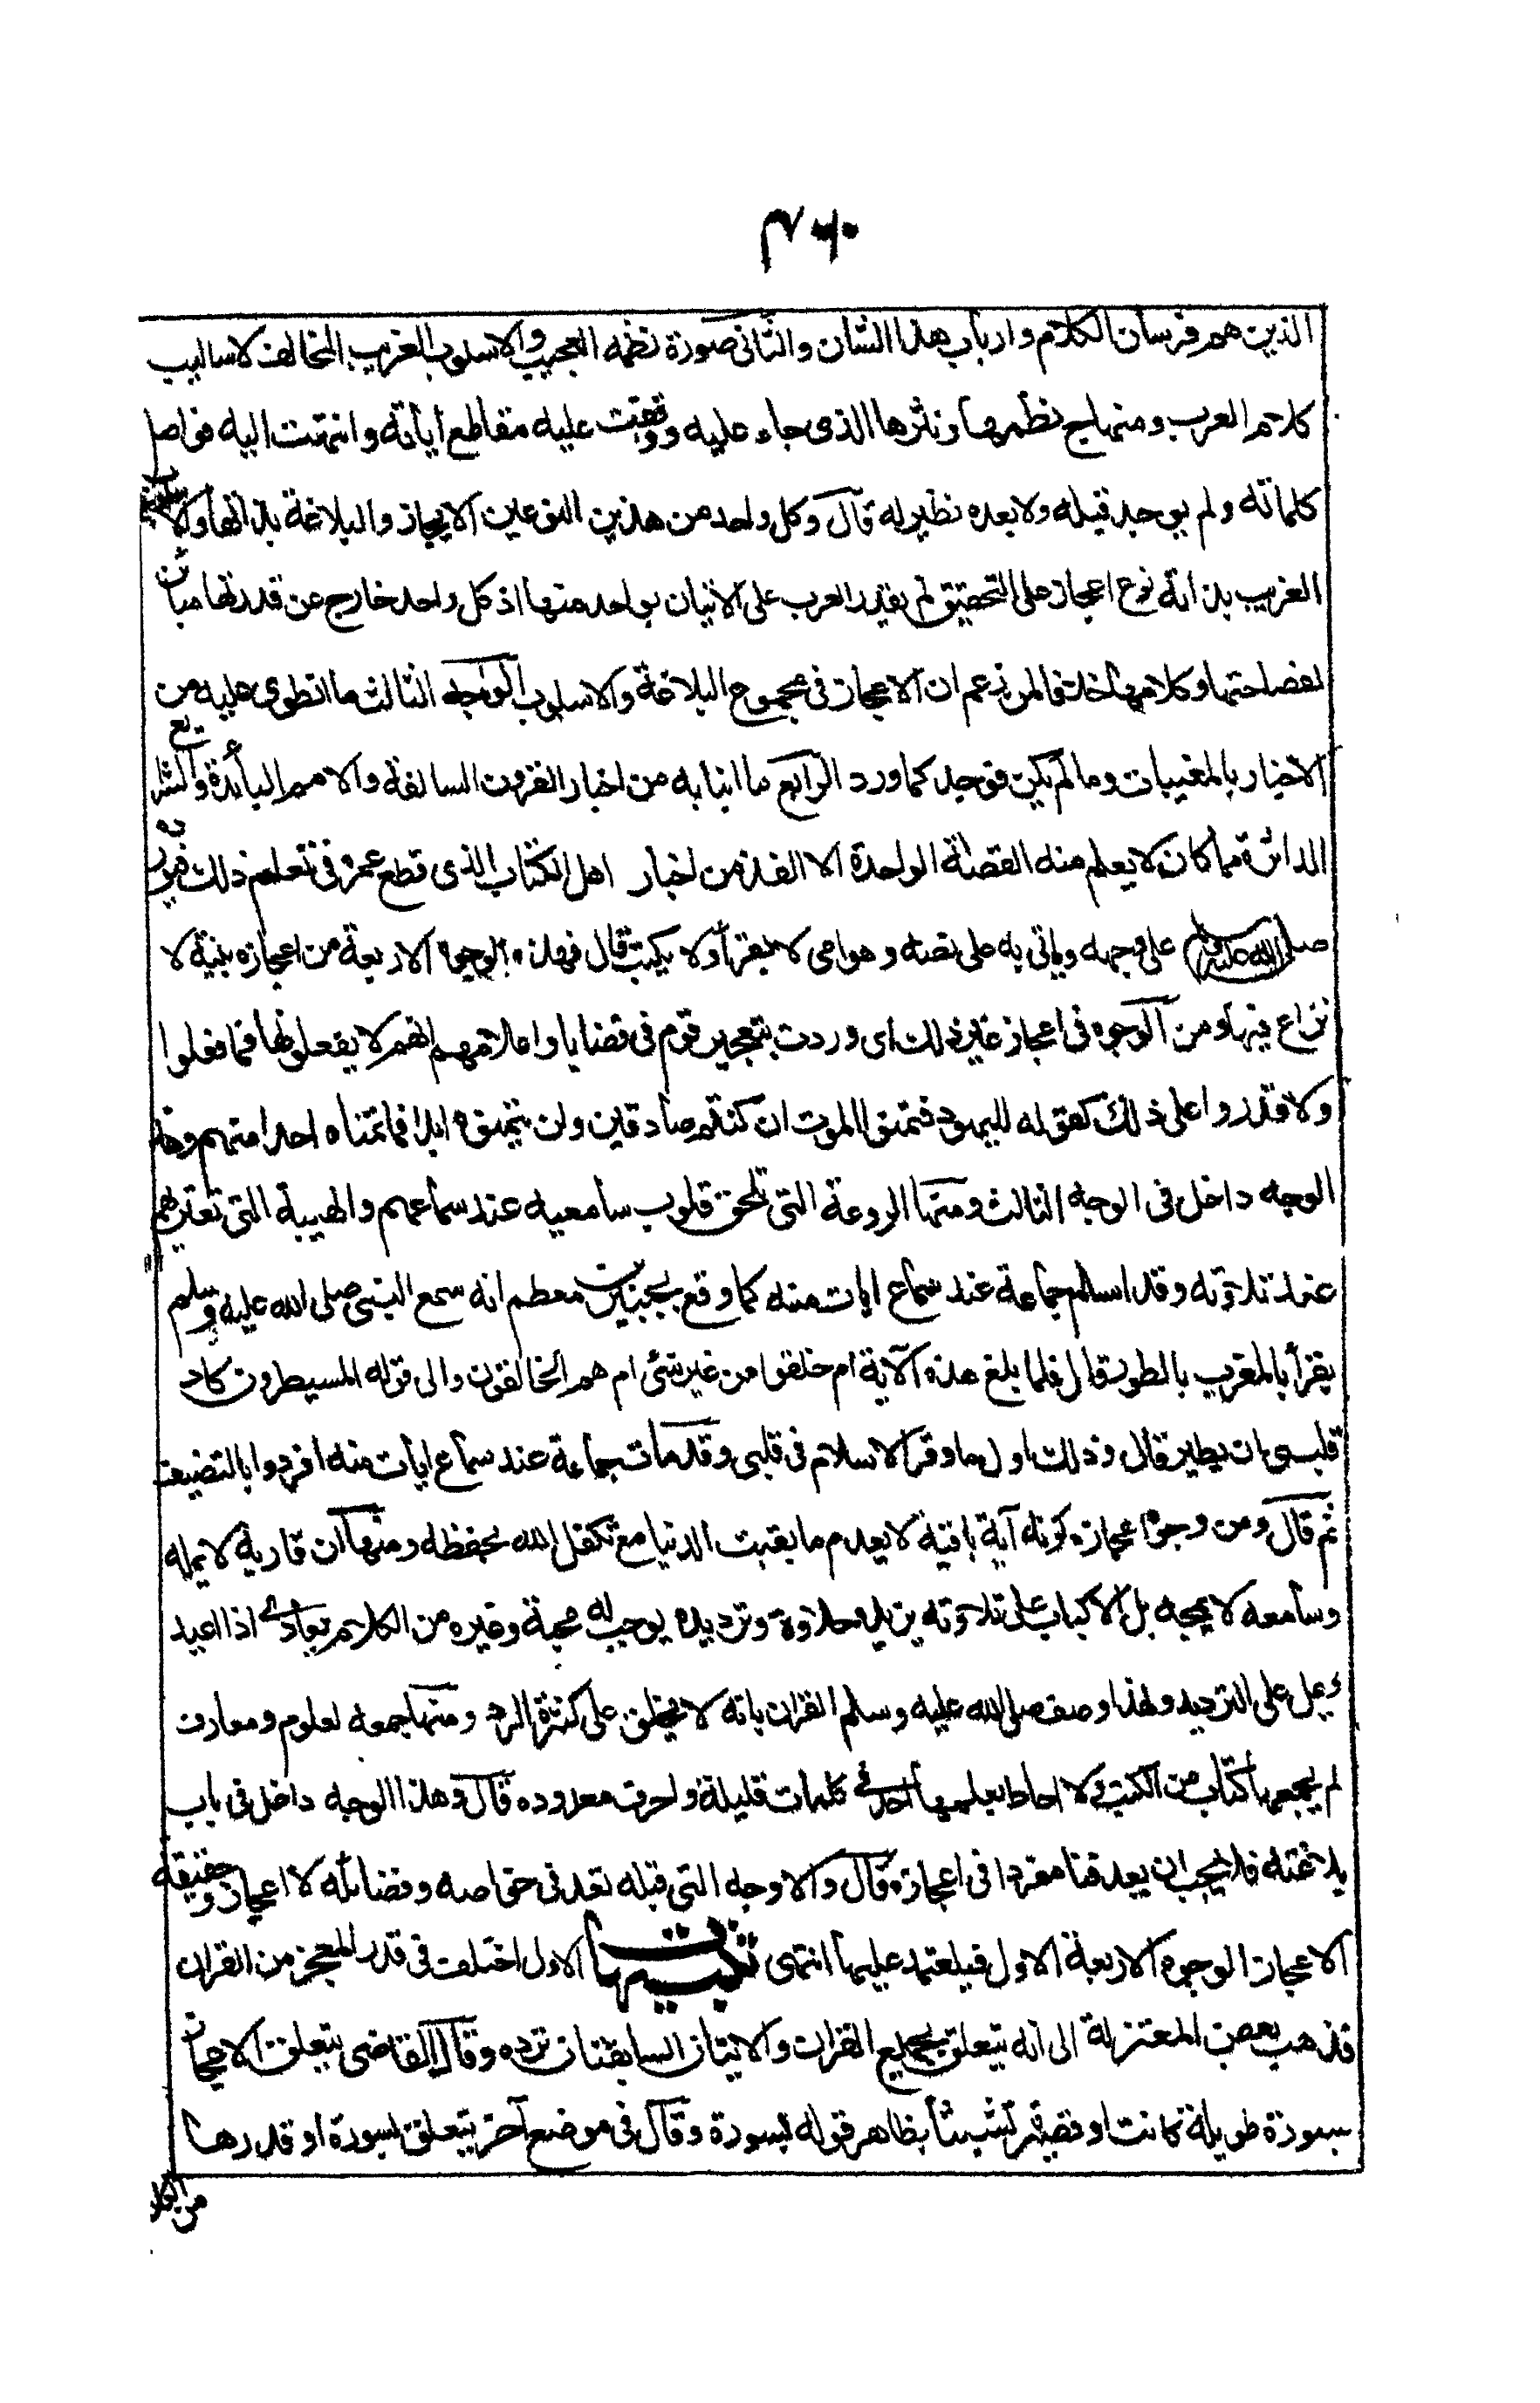 ٣٦٠
الذين هم فرسان الكلام وارباب هذا الشان والثانى صورة نظمه العجيب والاسلوب الغريب المخالف لاساليب
كلام العرب ومنهاج نظمها ونثرها الذى جاء عليه ووقفت عليه مقاطع آياته وانتهت اليه فواصل
كلماته ولم يوجد قبله ولا بعده نظير له قال وكل واحد من هذين النوعين الايجاز والبلاغة بذاتها والاسلوب
الغريب بذاته نوع اعجاز على التحقيق لم يقدر العرب على الاتيان بواحد منها اذ كل واحد خارج عن قدرتها مباين
لفصاحتها وكلامها خلافا لمن زعم ان الاعجاز فى مجموع البلاغة والاسلوب الوجه الثالث ما انطوى عليه من
الاخبار بالمغيبات وما لم يكن فوجد كما ورد الرابع ما انبا به من اخبار القرون السالفة والامم البائدة والشرايع
الداثرة مما كان لا يعلم منه القصة الواحدة الا الفذ من اخبار اهل الكتاب الذى قطع عمره فى تعلم ذلك فيورده
صلى الله عليه وسلم على وجهه وياتى به على نصه وهو امى لا يقرأ ولا يكتب قال فهذه الوجوه الاربعة من اعجازه بينة لا
نزاع فيها ومن الوجوه فى اعجازه غير ذلك اى وردت بتعجيز قوم فى قضايا واعلامهم انهم لا يفعلونها فما فعلوا
ولا قدروا على ذلك كقوله لليهود فتمنوا الموت ان كنتم صادقين ولن يتمنوه ابدا فما تمناه احدا منهم وهذا
الوجه داخل فى الوجه الثالث ومنها الروعة التى تلحق قلوب سامعيه عند سماعهم والهيبة التى تعتريهم
عند تلاوته وقد اسلم جماعة عند سماع ايات منه كما وقع لجبير بن معطم انه سمع النبى صلى الله عليه وسلم
يقرأ بالمغرب بالطور قال فلما بلغ هذه الآية ام خلقوا من غير شئ ام هم الخالقون والى قوله المسيطرون كاد
قلبى ان يطير قال وذلك اول ما وقر الاسلام فى قلبى وقد مات جماعة عند سماع ايات منه افردوا بالتصنيف
ثم قال ومن وجوه اعجازه كونه آية باقية لا يعدم ما بقيت الدنيا مع تكفل الله بحفظه ومنها ان قاريه لا يمله
وسامعه لا يمجه بل الاكباب على تلاوته يزيده حلاوة وترديده يوجب له محبة وغيره من الكلام يعادى اذا اعيد
ويمل على الترديد ولهذا وصف صلى الله عليه وسلم القران بانه لا يخلق على كثرة الرد ومنها جمعه لعلوم ومعارف
لم يجمعها كتاب من الكتب ولا احاط بعلمها احد فى كلمات قليلة واحرف معدوده قال وهذا الوجه داخل فى باب
بلاغته فلا يجب ان يعد فنا مفردا فى اعجازه قال والاوجه التى قبله تعد فى خواصه وفضائله لا اعجازه وحقيقة
الاعجاز الوجوه الاربعة الاول فليعتمد عليها انتهى تنبيهات الاول اختلف فى قدر المعجز من القران
فذهب بعض المعتزلة الى انه يتعلق بجميع القران والايتان السابقتان ترده وقال القاضى يتعلق الاعجاز
بسورة طويلة كانت او قصيرة تشبثا بظاهر قوله بسورة وقال فى موضع آخر يتعلق بسورة او قدرها
من الكلام